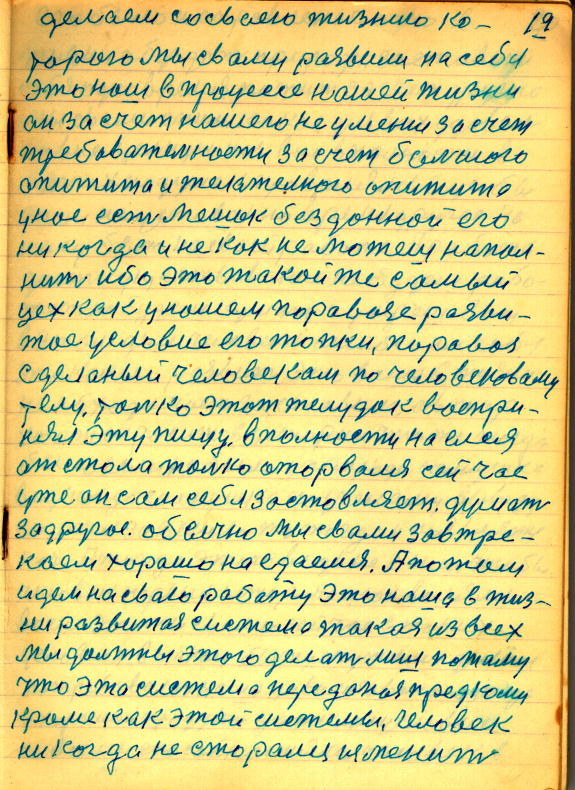 19
делаем со своего жизнию ко-
торого мы свами развили на себи
Это наш в процессе нашей жизни
он за счет нашего не умени за счет
требователности за счет болшого
опитита и желателного опитита
унас ест мешок бездонной его
никогда и не как не можеш напол-
нит ибо это такой же самый
цех как унашем поравозе разви-
тое условие его топки, поравоз
сделаный человекам по человековаму
телу, толко этот желудок воспри-
нял эту пищу, вполности наелся
от стола толко оторвался сейчас
уже он сам себя зоставляет. думат
задругое. обычно мы свами завтре-
каем хорошо наедаемся. А потом
идем насваю работу это наша в жиз-
ни развитая система такая из всех
мы должны этого делат лиш потаму
что эта система переданая предками
кроме как этой системы, человек
никогда не сторался изменит